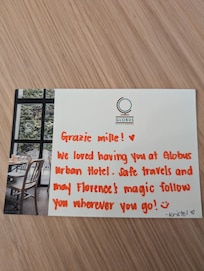 GLOBUS
Grazie mille! ♥
We loved having you at Globus
Urban Hotel. Safe travels and
may Florence's magic follow
you wherever you go! ☺